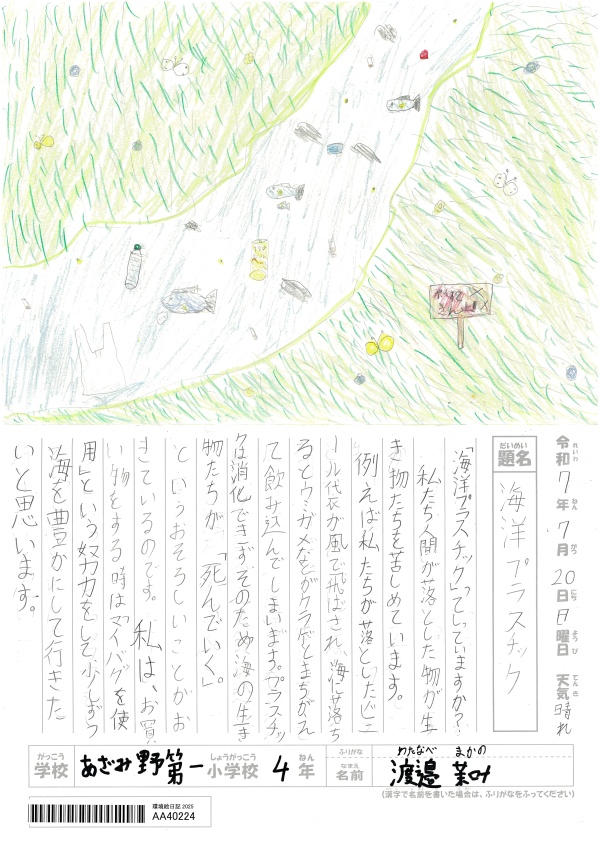 令和7年7月20日日曜日 天気 晴れ
れいわ ねん がつ にち ようび てんき
だいめい
題名 海洋プラスチック
「海洋プラスチック」ってしっていますか？
私たち人間が落とした物が生
き物たちを苦しめています。
例えば私たちが落としたビニ
ール代衣が風で飛ばされ、海に落ち
るとウミガメなどがクラゲとまちがえ
て飲み込んでしまいます。プラスチッ
クは消化できずそのため海の生き
物たちが「死んでいく」。
というおそろしいことがお
きているのです。私は、お買
い物をする時はマイバグを使
用」という努力をして少しずつ
海を豊かにして行きた
いと思います。
がっこう しょうがっこう ねん
学校 あざみ野第一小学校 4年
ふりがな わたなべ まかの
なまえ
名前 渡邉
(漢字で名前を書いた場合は、ふりがなをふってください)
環境絵日記 2025
AA40224